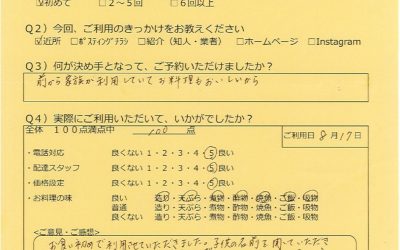 ☑初めて □2～5回 □6回以上
Q2）今回、ご利用のきっかけをお教えください
☑近所 □ﾎﾟｽﾃｨﾝｸﾞﾁﾗｼ □紹介（知人・業者） □ホームページ □Instagram
Q3）何が決め手となって、ご予約いただけましたか？
前から家族が利用していてお料理もおいしいから
Q4）実際にご利用いただいて、いかがでしたか？
全体 100点満点中 100 点
ご利用日 8月17日
・電話対応 良くない 1・2・3・4・5 良い
・配達スタッフ 良くない 1・2・3・4・5 良い
・価格設定 良くない 1・2・3・4・5 良い
・お料理の味 良い 造り・天ぷら・煮物・酢物・焼魚・ご飯・吸物
普通 造り・天ぷら・煮物・酢物・焼魚・ご飯・吸物
良くない 造り・天ぷら・煮物・酢物・焼魚・ご飯・吸物
＜ご意見・ご感想＞
お食い初めで利用させていただきました。子供の名前を聞いていただき